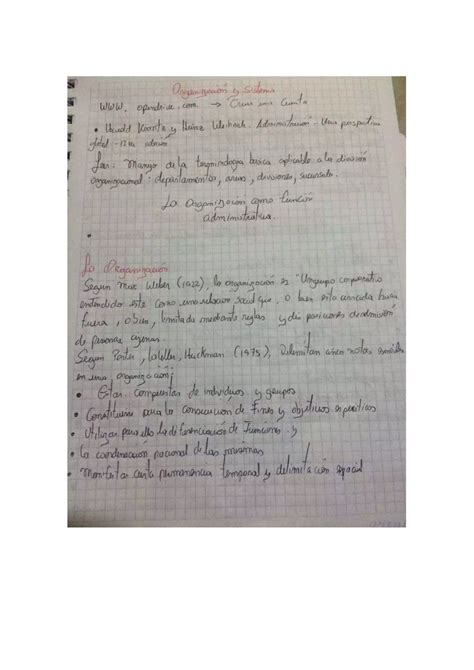 Organización y Sistema
WWW. opendrive.com. → "Crear una Cuenta
• Harold Koontz y Heinz Weihrich. Administración. Una perspectiva
global - 12va edición
Leer: Manejo de la terminología básica aplicable a la división
organizacional: departamentos, áreas, divisiones, sucursales.
La Organización como función
administrativa.
La Organización
Segun Max Weber (1922), la organización es "Un grupo corporativo
entendido este como una relación social que, o bien esta cerrada hacia
fuera, o bien, limitada mediante reglas y disposiciones de admisión,
de personas ajenas.
Segun Porter, Lawler, Hackman (1975), Delimitan cinco notas esenciales
en una organización:
• Estar compuestas de individuos y grupos
• Constituirse para la Consecución de Fines y objetivos especificos
• Utilizar para ello la diferenciación de Funciones y
• la coordinación racional de las mismas
• Manifestar cierta permanencia temporal y delimitación espacial